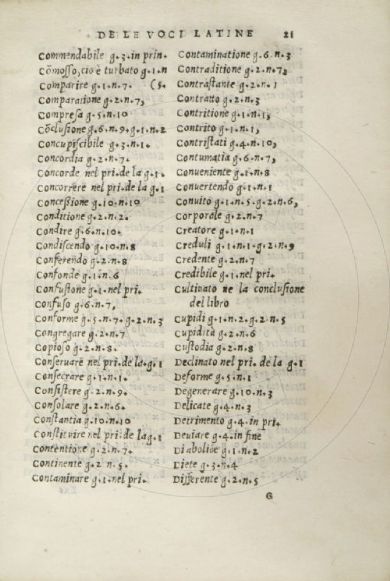 DE LE VOCI LATINE 21
Commendabile g.3.in prin.
Cõmosso, cio è turbato g.1.n
Comparire g.1.n.7. (5.
Comparatione g.2.n.7,
Compresa g.5.n.10
Cõclusione g.6.n.9.g.1.n.2
Concupiscibile g.3.n.1.
Concordia g.2.n.7.
Concorde nel pri.de la g.1.
Concorrere nel pri.de la g.1
Concessione g.10.n.10
Conditione g.2.n.2.
Condire g.6.n.10.
Condiscendo g.10.n.8
Conferendo g.2.n.8
Confonde g.1.n.6
Confusione g.1.nel pri.
Confuso g.6.n.7,
Conforme g.5.n.7.g.2.n.3
Congregare g.2.n.7
Copioso g.2.n.8.
Conseruare nel pri.de la.g.1
Consecrare g.1.n.1.
Consistere g.2.n.9.
Consolare g.2.n.6.
Constantia g.10.n.10
Constituire nel pri.de la g.1
Contentione g.2.n.7.
Continente g.2.n.5.
Contaminare g.1.nel pri.
Contaminatione g.6.n.3
Contraditione g.2.n.7,
Contrastante g.2.n.1
Contratto g.2.n.3
Contritione g.1.n.1,
Contrito g.1.n.1,
Contristati g.4.n.10,
Contumatia g.6.n.7,
Conueniente g.1.n.8
Conuertendo g.1.n.1
Conuito g.1.n.5.g.2.n.6,
Corporale g.2.n.7
Creatore g.1.n.1
Creduli g.1.n.1.g.2.n.9
Credente g.2.n.7
Credibile g.1.nel pri.
Cultiuato ne la conclusione
del libro
Cupidi g.1.n.2.g.2.n.5
Cupidità g.2.n.6
Custodia g.2.n.8
Declinato nel pri.de la g.1
Deforme g.5.n.1
Degenerare g.10.n.3
Delicate g.4.n.3
Detrimento g.4.in pri.
Deuiare g.4.in fine
Diabolice g.1.n.2
Diete g.3.n.4
Differente g.2.n.5
G